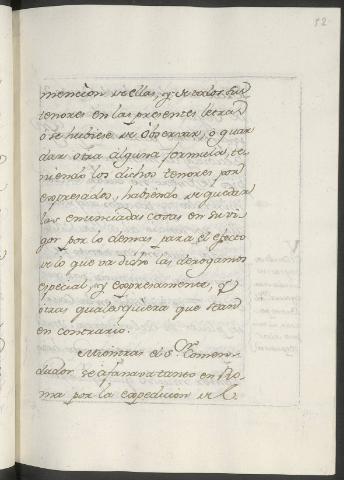 52
mencion de ellas, y de todos sus
tenores en las presentes letras
o se hubiese de observar, o guar
dar otra alguna formula, te
niendo los dichos tenores por
expresados, habiendo de quedar
las enunciadas cosas en su vi
gor por lo demas, para el efecto
de lo que va dicho las derogamos
especial, y expresamente, y
otras qualesquiera que sean
en contrario.
Mientras el Sr. Comen-
dador se afanava tanto en Ro-
ma por la expedicion de